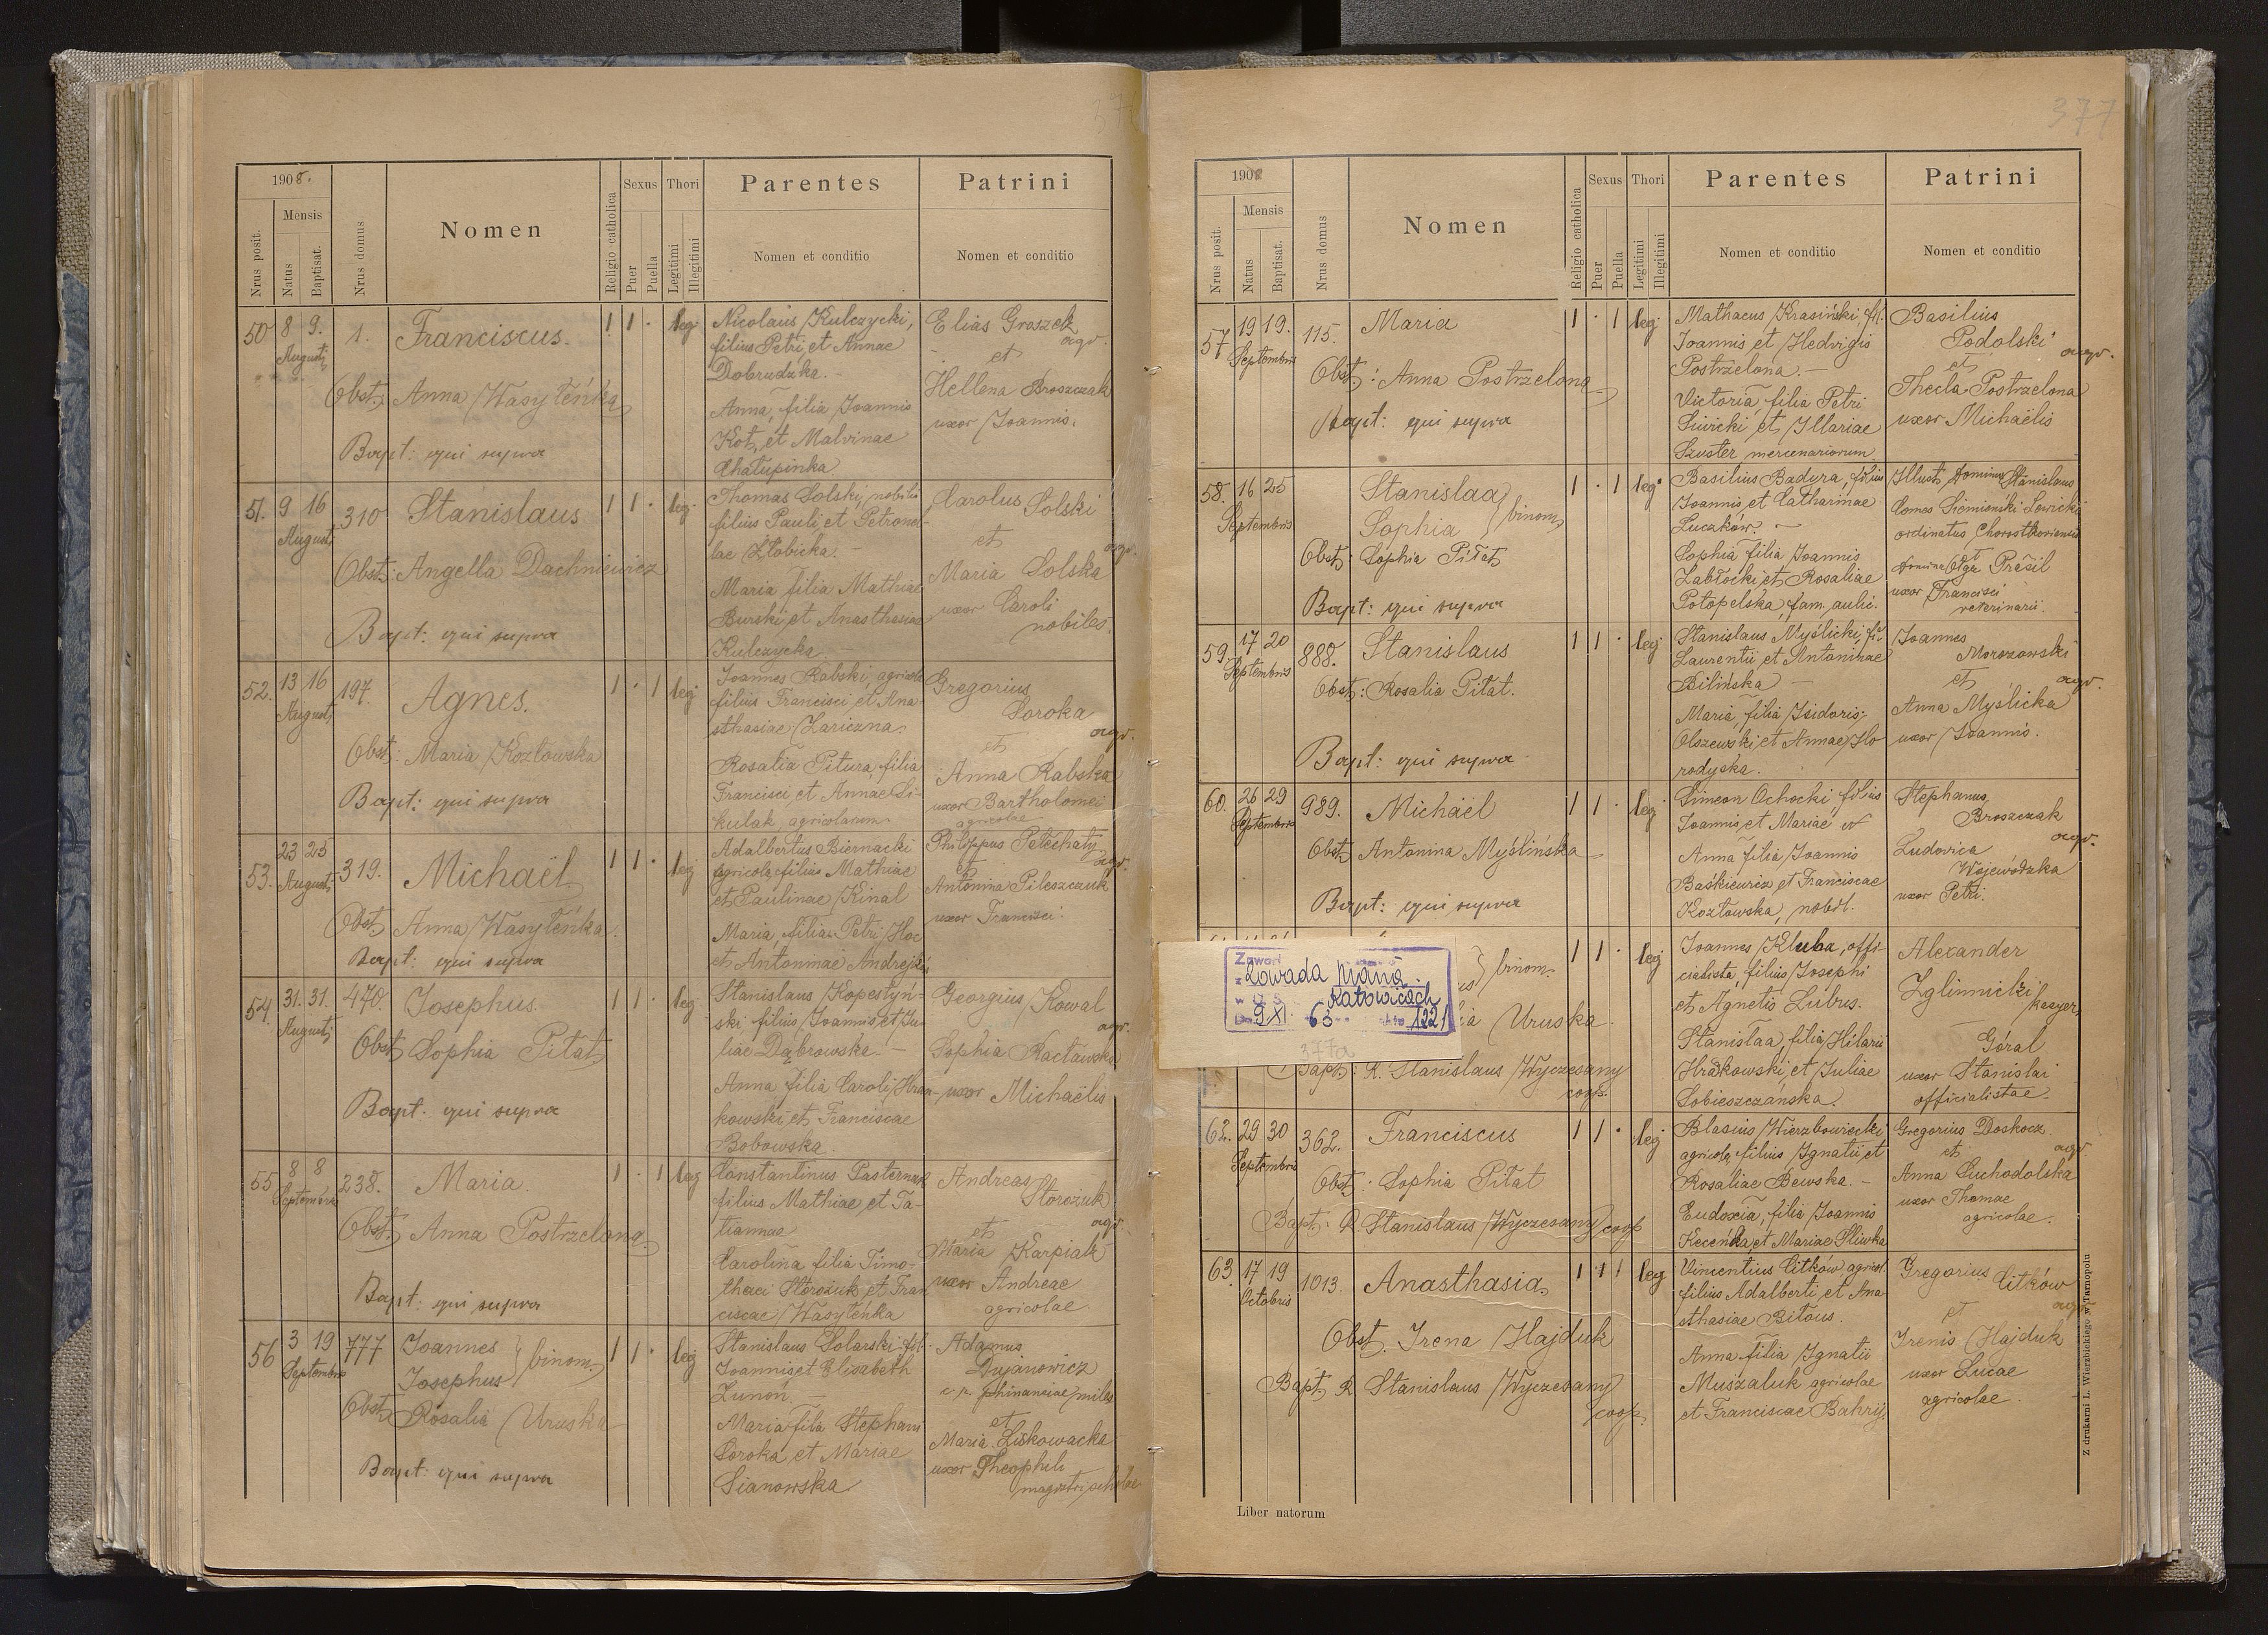 1908.
Nrus posit.
Mensis
Natus
Baptisat.
Nrus domus
Nomen
Religio catholica
Sexus
Puer
Puella
Thori
Legitimi
Illegitimi
Parentes
Nomen et conditio
Patrini
Nomen et conditio
50 8 9. 1. Franciscus. 1 1 · leg
Augusti
Obst. Anna Wasyleńka
Bapt: qui supra
Nicolaus Kulczycki,
filius Petri et Annae
Dobrudzka. -
Anna, filia Joannis
Kot, et Malvinae
Chałupinka
Elias Groszek
agr.
et
Hellena Broszczak
uxor Joannis.
51. 9 16 310 Stanislaus 1 1 · leg.
Augusti
Obst: Angella Dachniewicz
Bapt: qui supra
Thomas Solski, nobilis
filius Pauli et Petronel-
lae Złobicka. -
Maria filia Mathiae
Burski et Anasthasiae
Kulczycka. -
Carolus Solski
et
agr.
Maria Solska
uxor Caroli
nobiles.
52. 13 16 197. Agnes. 1 · 1 leg
Augusti
Obst: Maria Kozłowska
Bapt: qui supra
Joannes Rabski, agricola
filius Francisci et Ana
sthasiae Zariczna.
Rosalia Pitura, filia
Francisci et Annae Si-
kulak, agricolarum
Gregorius
Soroka
agr.
et
Anna Rabska
uxor Bartholomei
agricolae
53. 23 25 319. Michaël 1 1 · leg
Augusti
Obst. Anna Wasyleńka.
Bapt: qui supra
Adalbertus Biernacki
agricola, filius Mathiae
et Paulinae Kinal
Maria, filia Petri Hoc
et Antoninae Andrejków
Philippus Petechaty
agr.
et
Antonina Pileszczuk
uxor Francisci.
54. 31. 31. 470. Josephus. 1 1 · leg
Augusti
Obst. Sophia Pitat
Bapt: qui supra
Stanislaus Kopestyń-
ski filius Joannis et Ju-
liae Dąbrowska. -
Anna filia Caroli Hran-
kowski et Franciscae
Bobowska.
Georgius Kowal
agr.
Sophia Racławska
uxor Michaëlis
55 8 8 238. Maria. 1 · 1 leg
Septembris
Obst. Anna Postrzelona
Bapt: qui supra
Constantinus Pasternak
filius Mathiae et Ta-
tiannae
Carolina filia Timo-
thaei Storczuk et Fran
ciscae Wasyleńka
Andreas
Storczuk
agr.
et
Maria Karpiak
uxor Andreae
agricolae
56 3 19 777 Joannes
Josephus } binom. 1 1 · leg
Septembris
Obst. Rosalia Uruska
Bapt: qui supra
Stanislaus Solarski fil.
Joannis et Elisabeth
Zunoń. -
Maria filia Stephani
Soroka et Mariae
Sianowska
Adamus
Dujanowicz
c. r. phinanciae miles
et
Maria Liskowacka
uxor Theophili
magistri scholae
377
190
Nrus posit.
Mensis
Natus
Baptisat.
Nrus domus
Nomen
Religio catholica
Sexus
Puer
Puella
Thori
Legitimi
Illegitimi
Parentes
Nomen et conditio
Patrini
Nomen et conditio
57 19 19. 115. Maria 1 · 1 leg
Septembris
Obst.: Anna Postrzelona
Bapt: qui supra
Mathaeus Krasiński, fil.
Joannis et Hedvigis
Postrzelona. -
Victoria, filia Petri
Siwicki et Illariae
Szuster mercenariorum
Basilius
Podolski
agr.
et
Thecla Postrzelona
uxor Michaëlis
58. 16 25 Stanislaa
Sophia } binom 1 · 1 leg
Septembris
Obst: Sophia Pitat
Bapt: qui supra
Basilius Badyra, filius
Joannis et Catharinae
Łuczków -
Sophia filia Joannis
Zabłocki et Rosaliae
Potopelska, fam. aulic.
Illust. Dominus Stanislaus
Comes Siemieński-Lewicki
ordinatus Chorostkoviensis
et
Domina Olga Prašil
uxor Francisci
veterinarii.
59. 17 20 888. Stanislaus 1 1 · leg
Septembris
Obst: Rosalia Pitat.
Bapt: qui supra
Stanislaus Myślicki, fil.
Laurentii et Antoninae
Bilińska -
Maria, filia Isidoris
Olszewski et Annae Ho
rodyska.
Joannes
Morozowski
agr.
et
Anna Myslicka
uxor Joannis.
60. 26 29 989. Michaël 1 1 · leg
Septembris
Obst. Antonina Myślińska
Bapt: qui supra
Simeon Ochocki filius
Joannis et Mariae
Anna filia Joannis
Baśkiewicz et Franciscae
Kozłowska, nobil.
Stephanus
Broszczak
agr.
Ludovica
Wojewódzka
uxor Petri.
} binom. 1 1 · leg
Uruska.
Bapt: R. Stanislaus Wyczesany
coop.
Zowada Maria
Katowicach
9 XI. 63 1221
377a
Joannes Kluba, offi-
cialista, filius Josephi
et Agnetis Lubus.
Stanislaa, filia Hilarii
Hrabkowski, et Juliae
Sobieszczańska.
Alexander
Zglinnicki
kasyer,
Góral
uxor Stanislai
officialistae.
62. 29 30 362. Franciscus 1 1 · leg
Septembris
Obst.: Sophia Pitat
Bapt: R. Stanislaus Wyczesany coop
Blasius Wierzbowiecki
agricola, filius Ignatii et
Rosaliae Bewska. -
Eudoxia, filia Joannis
Keceńka et Mariae Sliwka
Gregorius Doskocz
agr.
et
Anna Suchodolska
uxor Thomae
agricolae.
63. 17 19 1013. Anasthasia. 1 1 1 leg
Octobris
Obst. Irena Hajduk
Bapt. R. Stanislaus Wyczesany
coop.
Vincentius Citków agricol.
filius Adalberti et Ana
sthasiae Bitous.
Anna filia Ignatii
Muszaluk agricolae
et Franciscae Bahrij.
Gregorius Citków
agr.
et
Irenis Hajduk
uxor Lucae
agricolae.
Liber natorum
Z drukarni L. Wierzbickiego w Tarnopolu